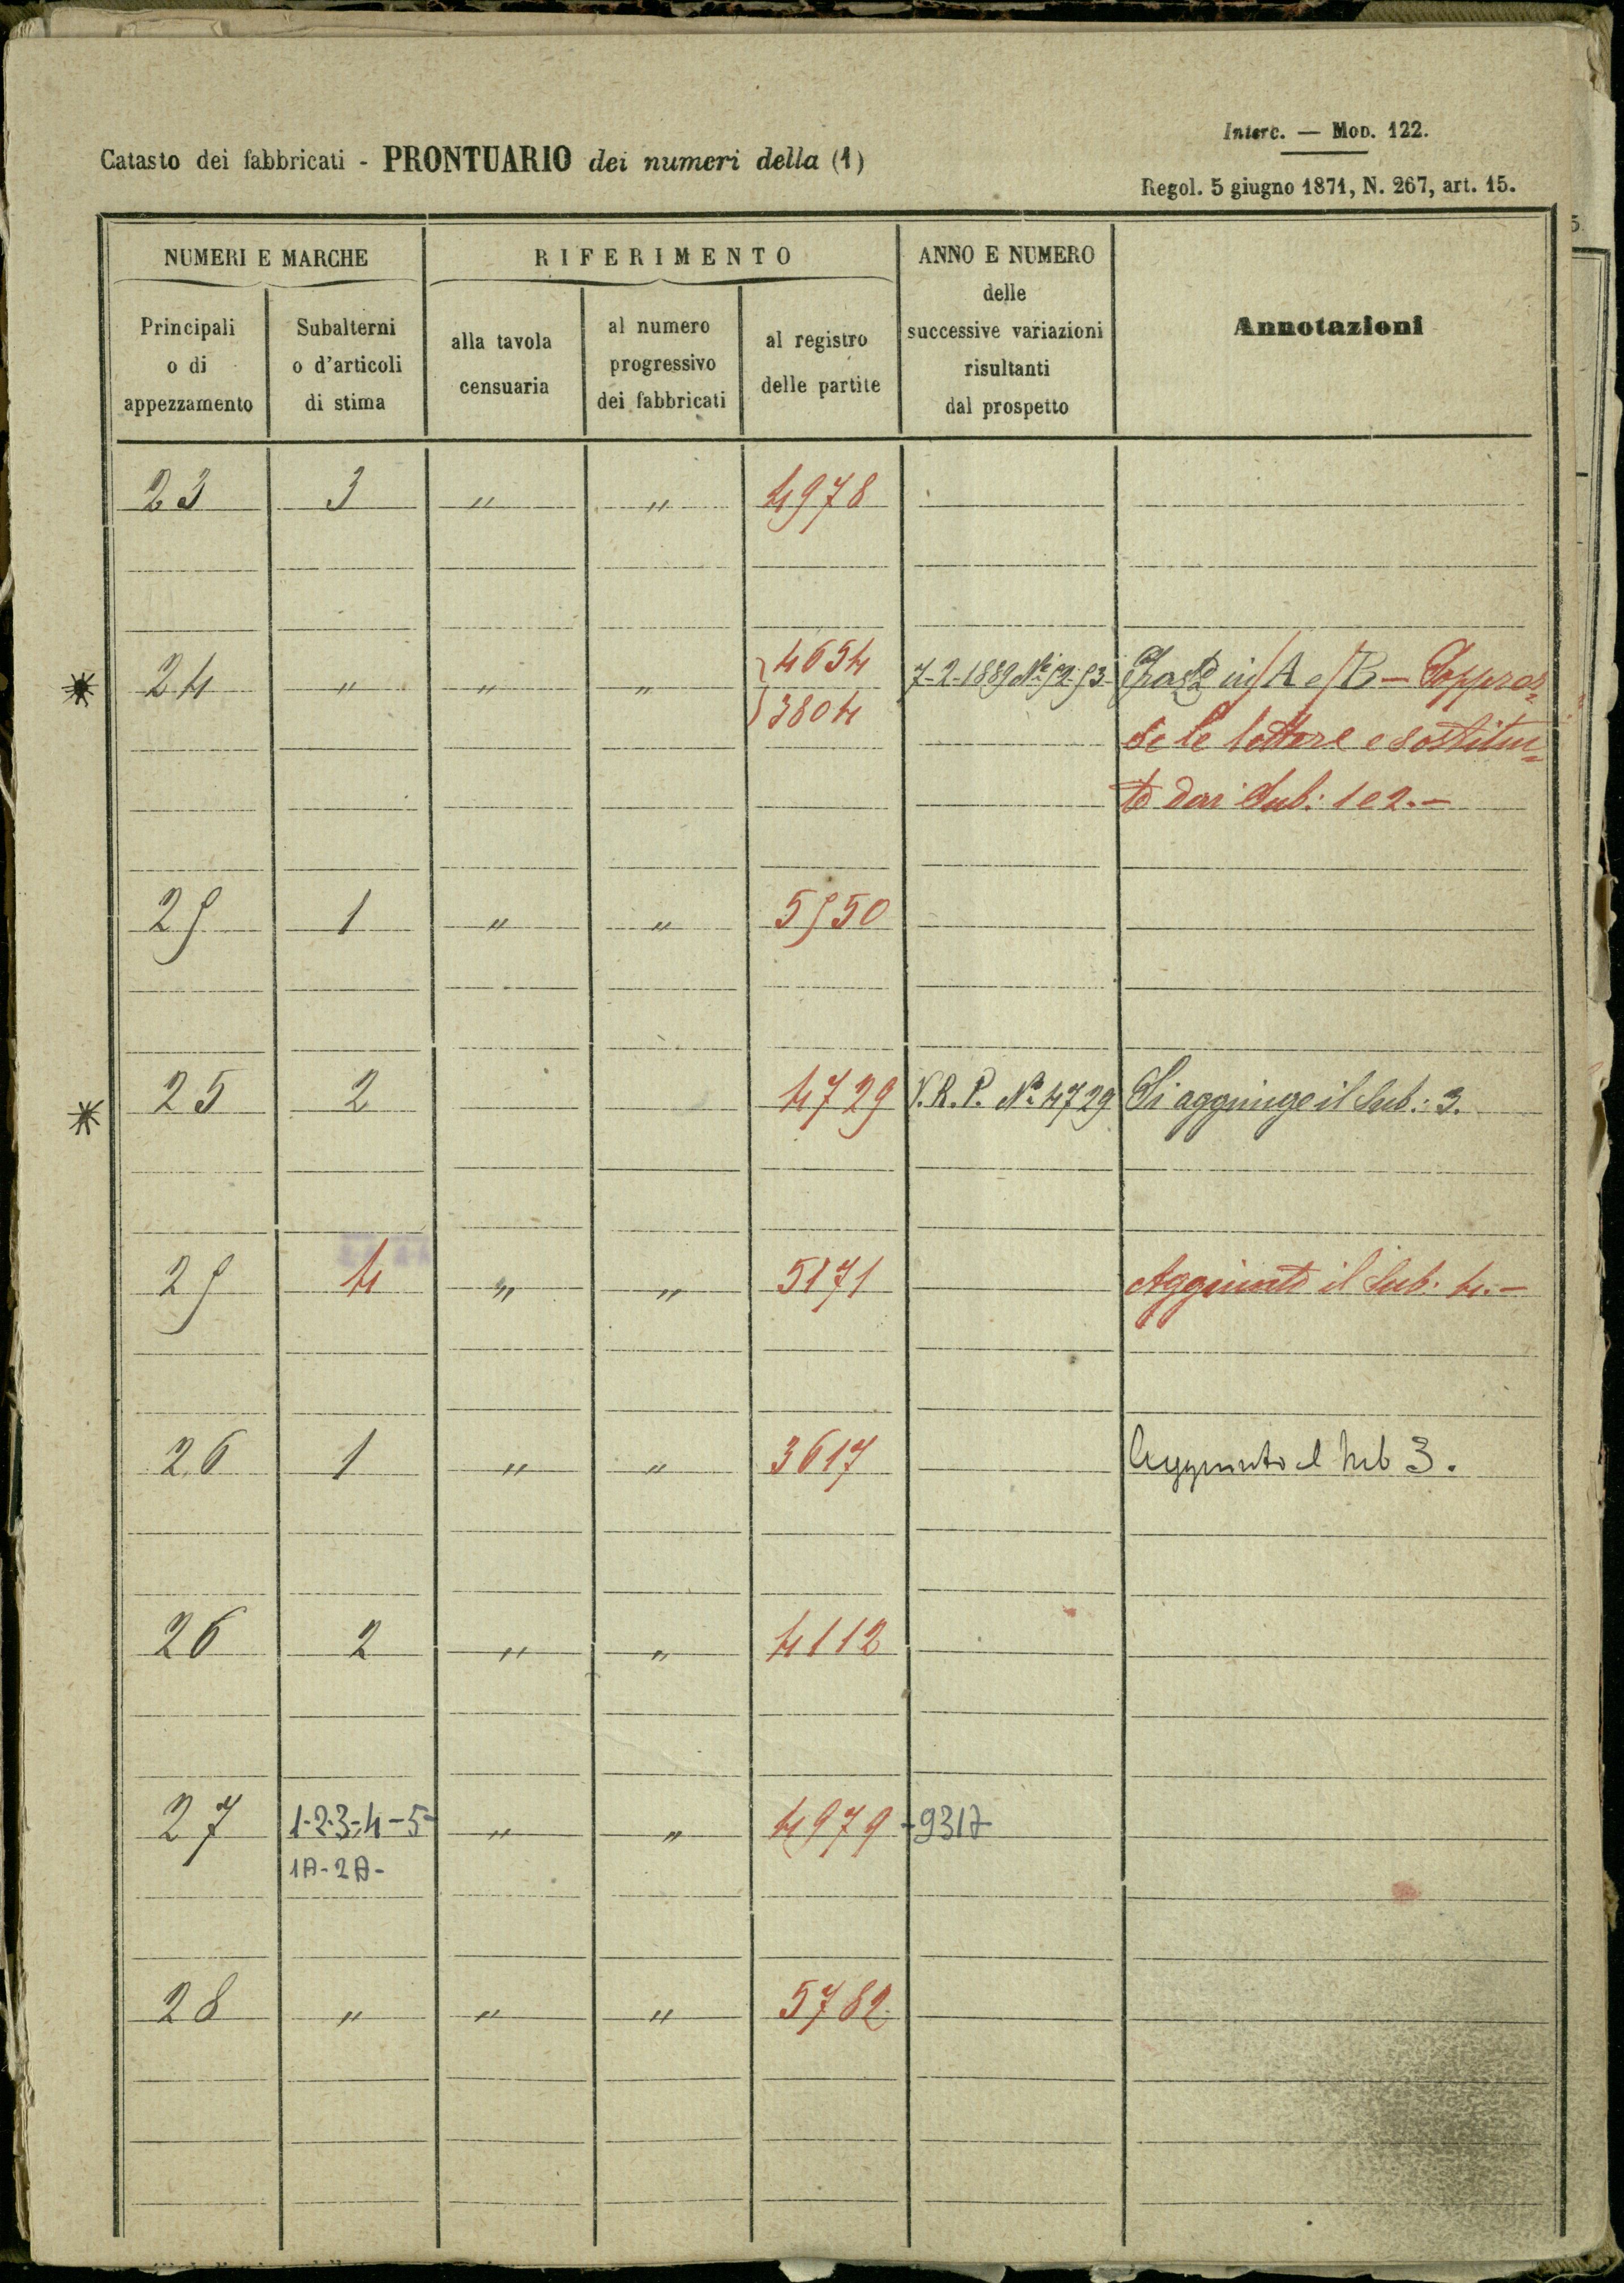 Interc. — Mod. 122.
Catasto dei fabbricati - PRONTUARIO dei numeri della (1)
Regol. 5 giugno 1871, N. 267, art. 15.
NUMERI E MARCHE
Principali
o di
appezzamento
Subalterni
o d'articoli
di stima
RIFERIMENTO
alla tavola
censuaria
al numero
progressivo
dei fabbricati
al registro
delle partite
ANNO E NUMERO
delle
successive variazioni
risultanti
dal prospetto
Annotazioni
23 3 " " 4978
24 " " " 4654 7-2-1889 N° 52-53 in A e B — Soppres=
3804
se le lettere e sostitui=
te dai Sub: 1 e 2. —
25 1 " " 5550
25 2 4729 V.R.P. N° 4729 Si aggiunge il Sub.: 3.
25 4 " " 5171 Aggiunto il Sub. 4. —
26 1 " " 3617 Aggiunto il sub 3.
26 2 " " 4112
27 1-2-3-4-5- " " 4979 -9317-
1A-2A-
28 " " " 5782